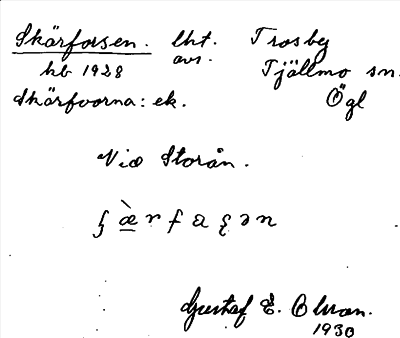 Skärforsen. lht. Trosby
kb 1928 avs. Tjällmo sn.
Skärfvorna: ek. Ögl
Vid Storån.
Gustaf E. Olson.
1930